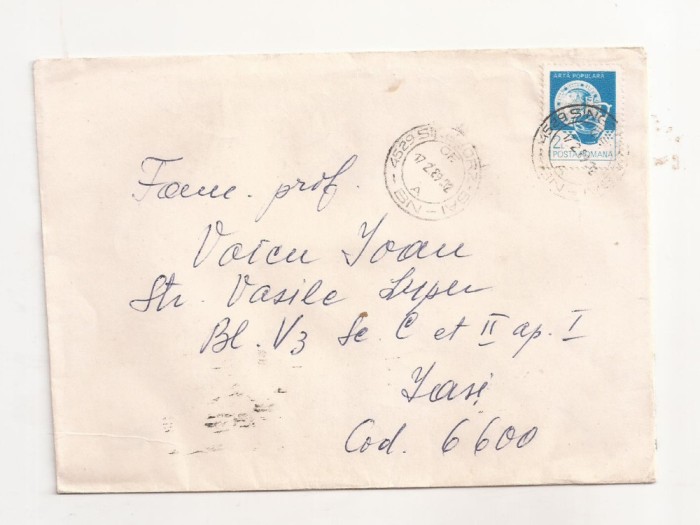 ARTĂ POPULARĂ
POSTA ROMANA
4529 SING
17.2.89
A
BN
Fam. prof.
Voicu Ioan
Str. Vasile Lupu
Bl. V3 Sc. C et II ap. I
Iași
Cod. 6600